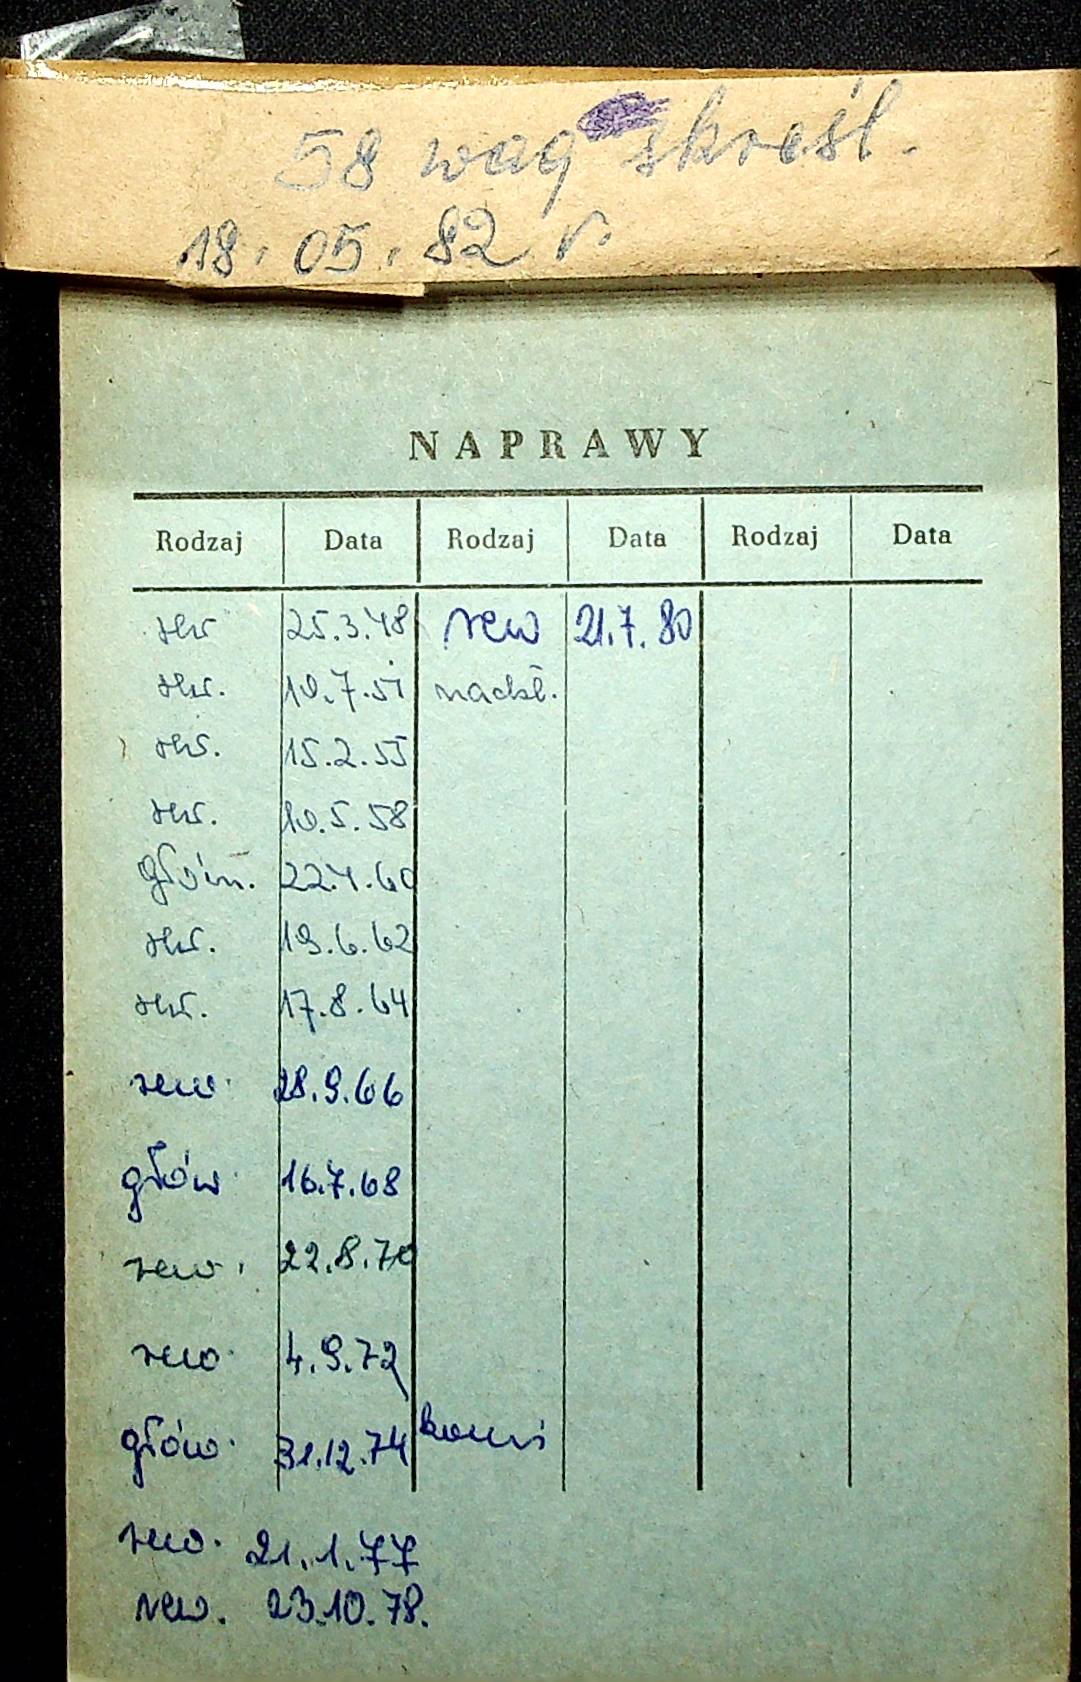 58 wag skreśl.
18.05.82 r.
NAPRAWY
Rodzaj Data Rodzaj Data Rodzaj Data
rew 25.3.48 rew 21.7.80
rew. 10.7.51
rew. 15.2.55
rew. 10.5.58
główn. 22.4.60
rew. 19.6.62
rew. 17.8.64
rew. 28.9.66
głów. 16.7.68
rew. 22.8.70
rew. 4.9.72
głów. 31.12.74
rew. 21.1.77
rew. 23.10.78.